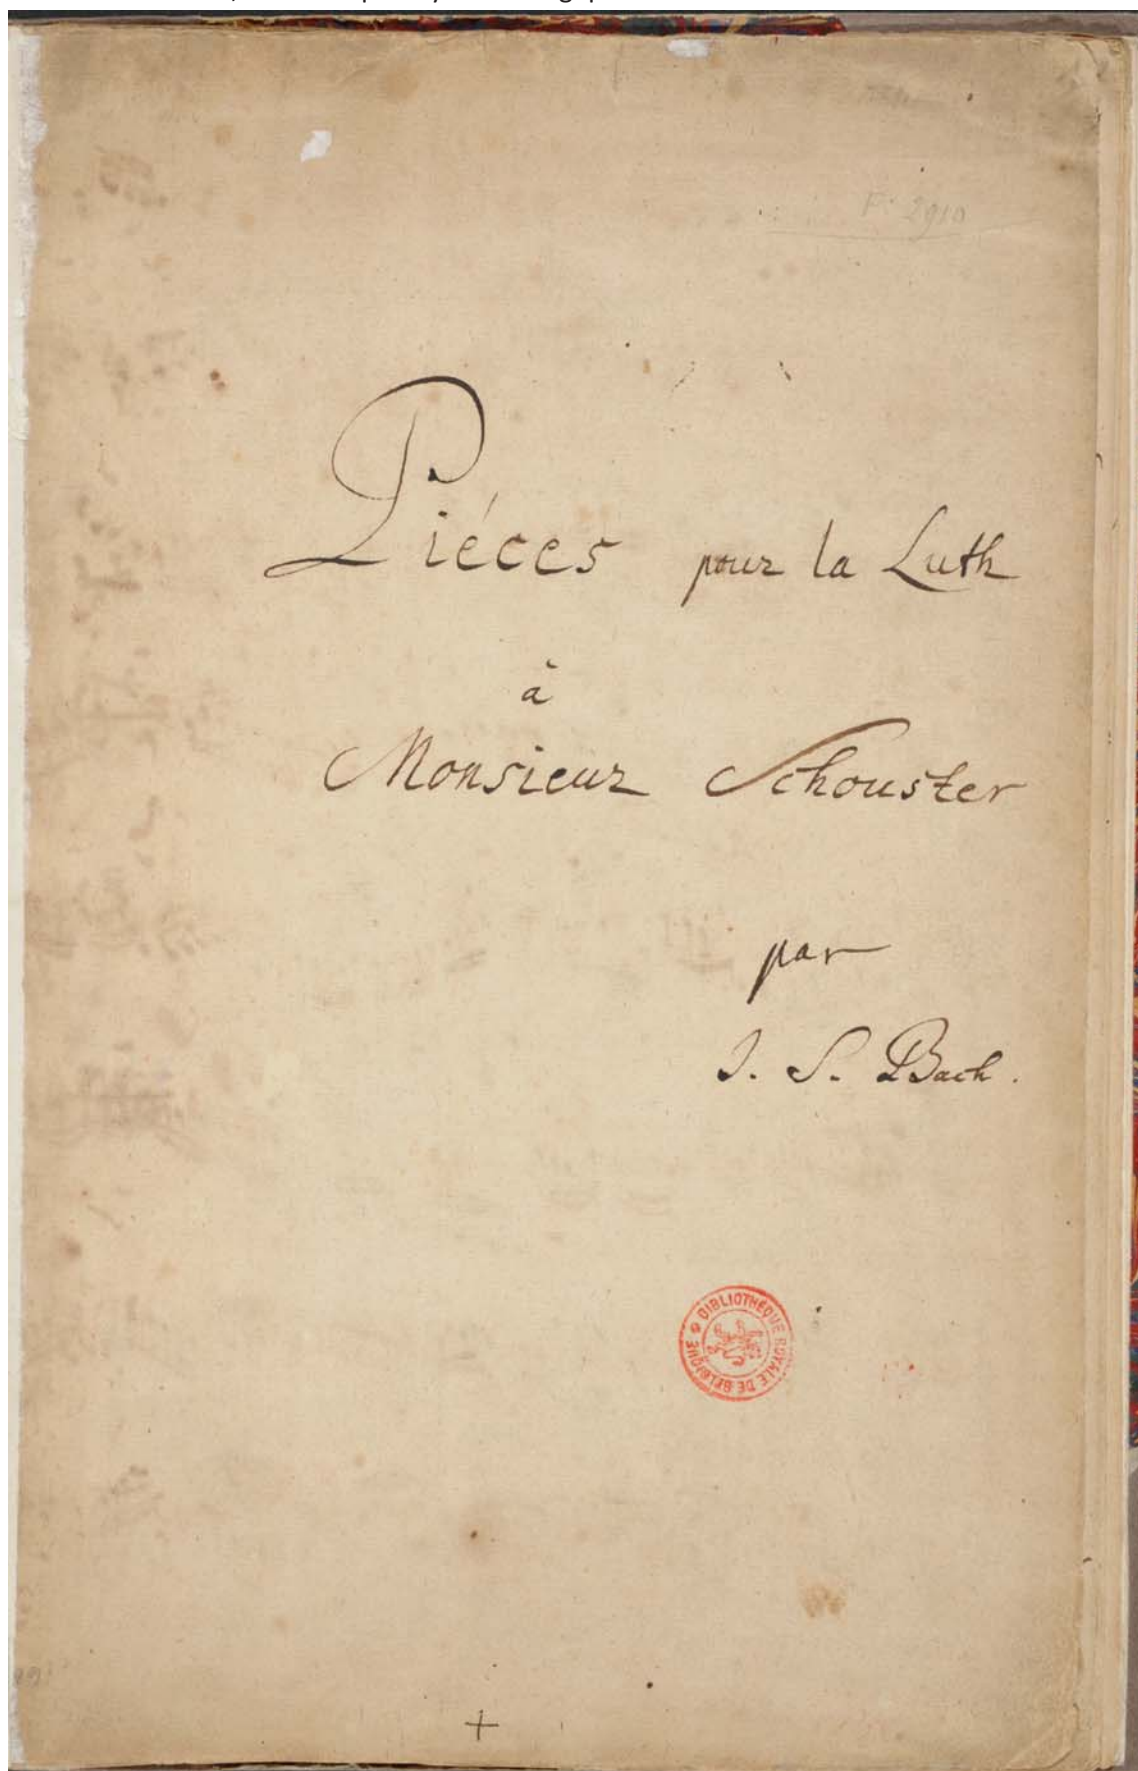 F. 2910
Piéces pour la Luth
à
Monsieur Schouster
par
J. S. Bach.
BIBLIOTHÈQUE ROYALE DE BELGIQUE
+